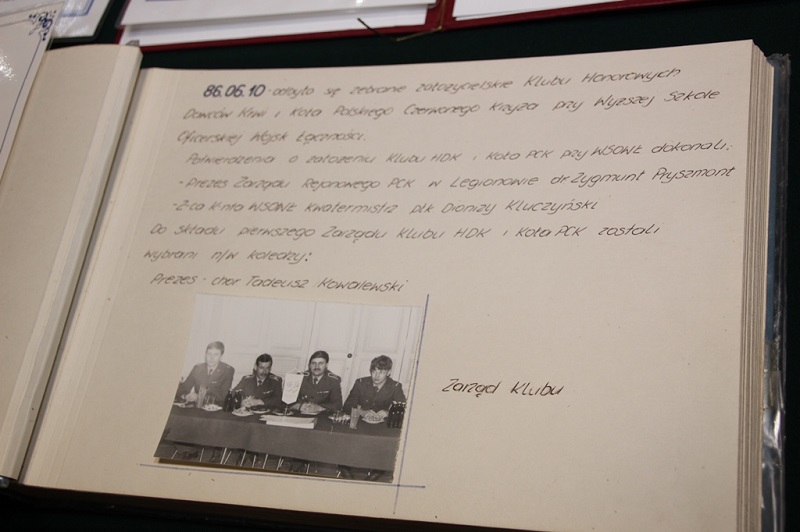 86.06.10 - odbyło się zebranie założycielskie Klubu Honorowych
Dawców Krwi i Koła Polskiego Czerwonego Krzyża przy Wyższej Szkole
Oficerskiej Wojsk Łączności.
Potwierdzenia o założeniu Klubu HDK i Koła PCK przy WSOWŁ dokonali:
- Prezes Zarządu Rejonowego PCK w Legionowie dr Zygmunt Pryszmont
- Z-ca K-nta WSOWŁ Kwatermistrz płk Dionizy Kluczyński
Do składu pierwszego Zarządu Klubu HDK i Koła PCK zostali
wybrani n/w koledzy:
Prezes - chor Tadeusz Kowalewski
Zarząd Klubu